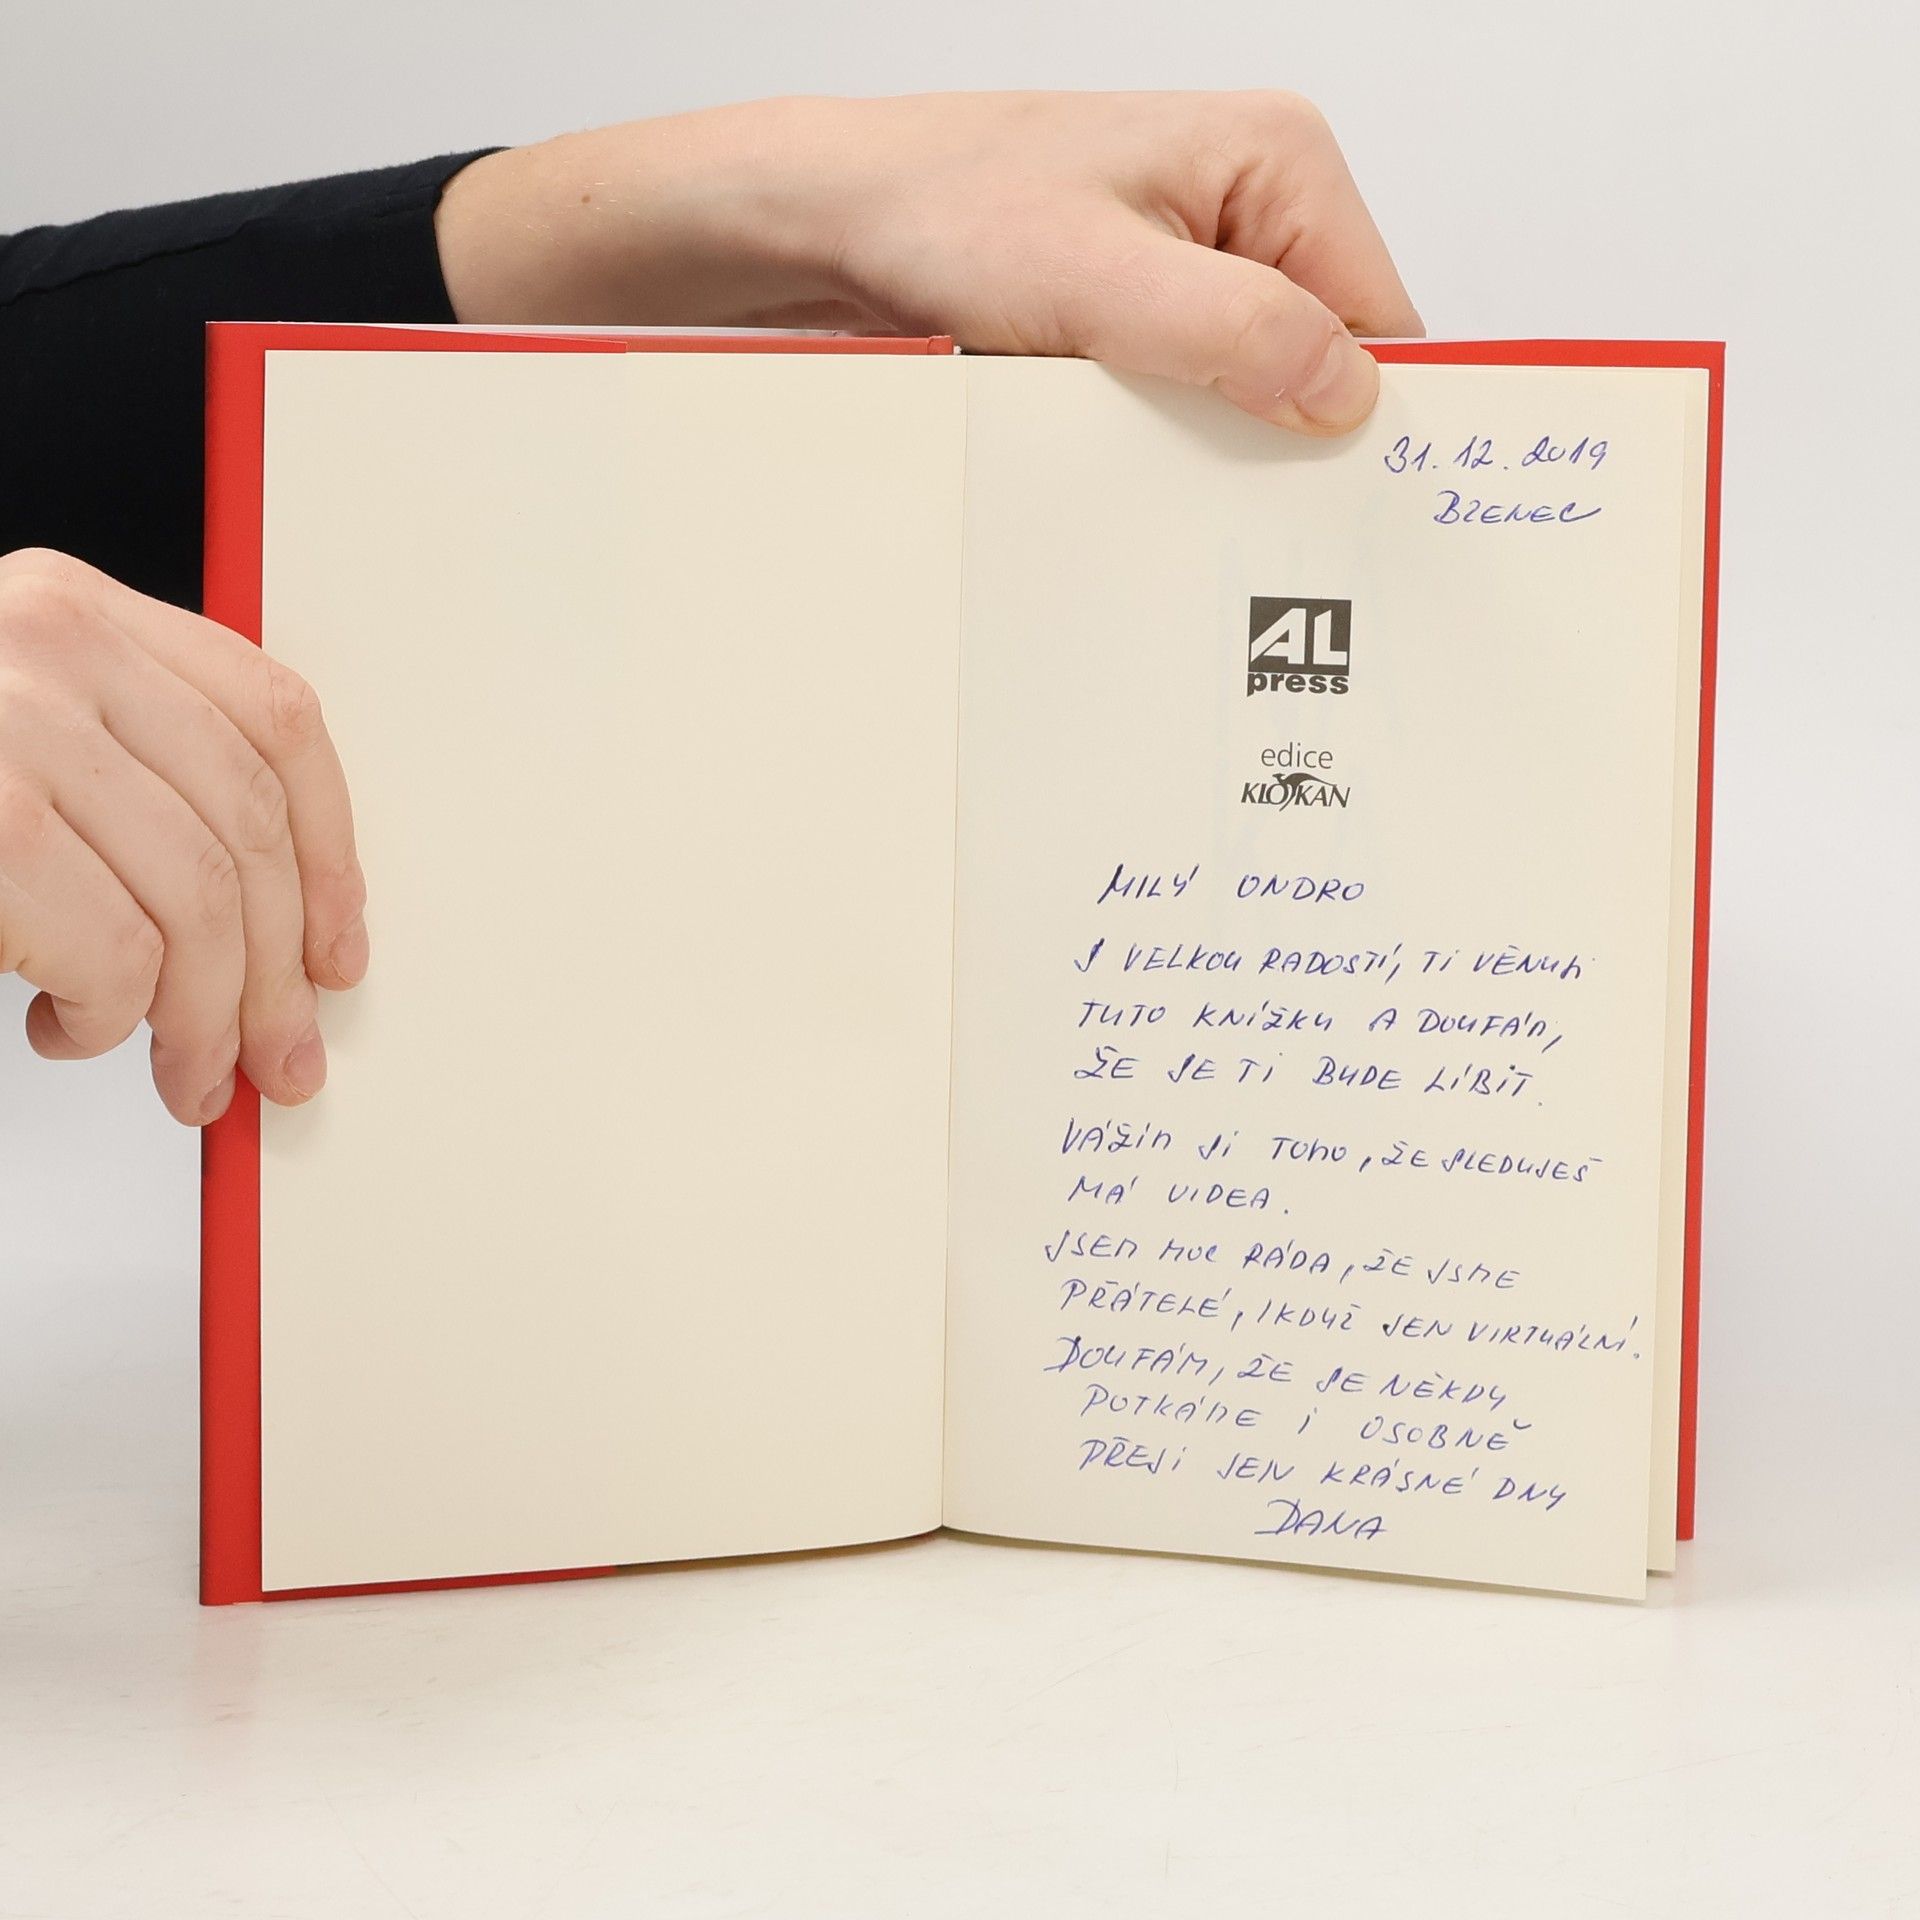 31.12.2019
BZENEC
AL
press
edice
KLOKAN
MILÝ ONDRO
S VELKOU RADOSTÍ, TI VĚNUJI
TUTO KNÍŽKU A DOUFÁM,
ŽE SE TI BUDE LÍBIT.
VÁŽÍM SI TOHO, ŽE SLEDUJEŠ
MÁ VIDEA.
JSEM MOC RÁDA, ŽE JSME
PŘÁTELÉ, IKDYŽ JEN VIRTUÁLNÍ.
DOUFÁM, ŽE SE NĚKDY
POTKÁME I OSOBNĚ
PŘEJI JEN KRÁSNÉ DNY
DANA